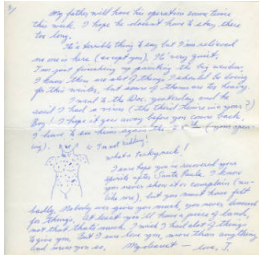 3)
My father will have his operation some time
this week. I hope he doesn't have to stay there
too long.
It's terrible thing to say but I'm relieved
no one is here (except you). It's very quiet.
I'm just finishing up painting the big window.
I know there are a lot of things I should be doing
for this winter, but some of them are too heavy.
I went to the Doc. yesterday and guess
what I had a virus (the third time in a year?)
Boy! I hope it goes away before you come back.
I have to see him again the 25th (your open-
ing).
I'm not kidding!
What a
I sure hope you recovered your
spirits after Santa Paula. I know
you never show it or complain (un-
like me), but you must have felt
badly. Nobody ever gives you much, you never demand
for things. At least you'll have a piece of land,
not that that's much. I wish I had a lot of things
to give you. But I miss you, more than anything
and miss you so, My dearest — love, J.